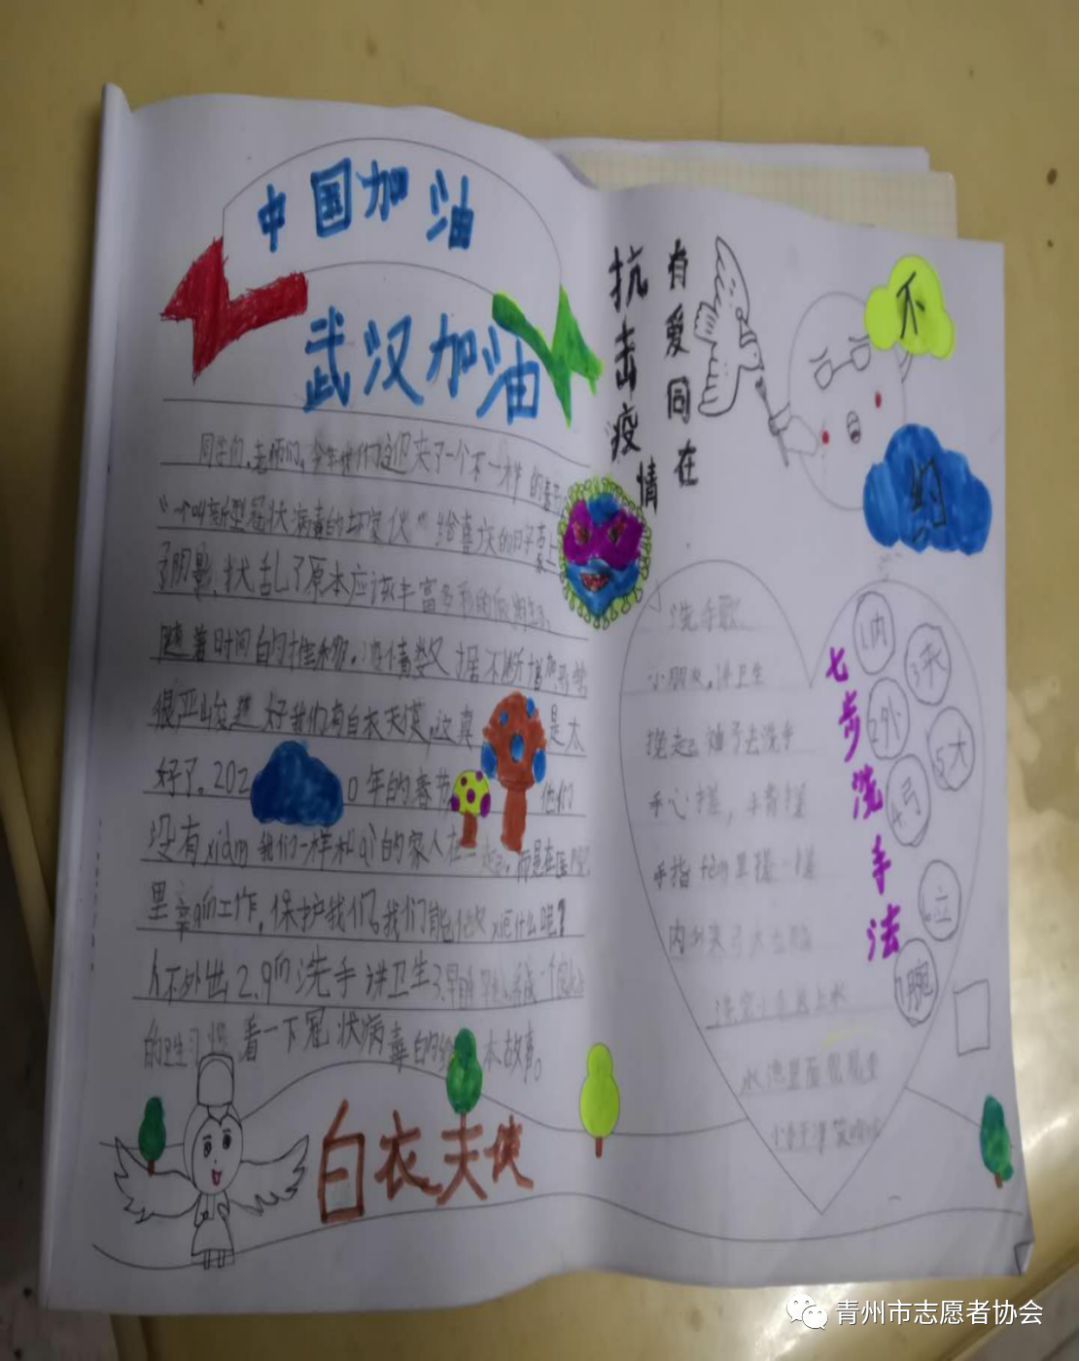 中国加油
武汉加油
同学们,老师们,今年我们迎来了一个不一样的春节
"一个叫新型冠状病毒的坏家伙"给喜庆的日子蒙上
了阴影,扰乱了原本应该丰富多彩的假期生活,
随着时间的推移,疫情数据不断增加形势
很严山峻,好我们有白衣天使,这真是太
好了。2020年的春节他们
没有xiàng我们一样和qī的家人在一起,而是在医院
里辛qín工作,保护我们,我们能做xiē什么呢?
1不外出2.qín洗手讲卫生3.
的卫生习惯看一下冠状病毒的绘本故事。
白衣天使
抗击疫情
有爱同在
不
约
洗手歌
小朋友,讲卫生
挽起袖子去洗手
手心搓,手背搓
手指夹里搓一搓
内外夹弓大立腕
七步洗手法
1内
2外
3夹
4弓
5大
6立
7腕
青州市志愿者协会